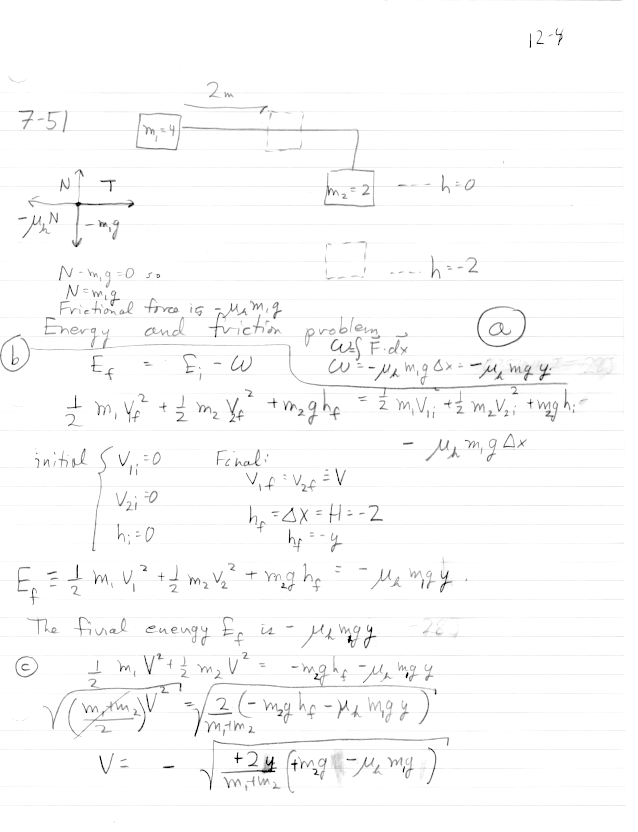 12-4
2m
7-51
m₁=4
N T
m₂=2 ---- h=0
-μₖN -m₁g
.... h=-2
N-m₁g=0 so
N=m₁g
Frictional force is -μₖm₁g
Energy and friction problem (a)
ω=∫F⃗·dx⃗
(b) E_f = E_i - ω ω=-μₖm₁gΔx=-μₖm₁g y
½ m₁V₁f² + ½ m₂V₂f² + m₂gh_f = ½ m₁V₁i² + ½ m₂V₂i² + m₂gh_i
- μₖm₁gΔx
initial { V₁i=0 Final:
V₁f=V₂f≡V
V₂i=0
h_f=Δx=H=-2
h_i=0 h_f=-y
E_f ≡ ½ m₁V₁² + ½ m₂V₂² + m₂gh_f = -μₖm₁gy.
The final energy E_f is -μₖm₁gy
(c) ½ m₁V² + ½ m₂V² = -m₂gh_f - μₖm₁gy
√((m₁+m₂)/2)V² = √(2/(m₁+m₂) (-m₂gh_f - μₖm₁gy))
V = - √(+2y/(m₁+m₂) (+m₂g - μₖm₁g))